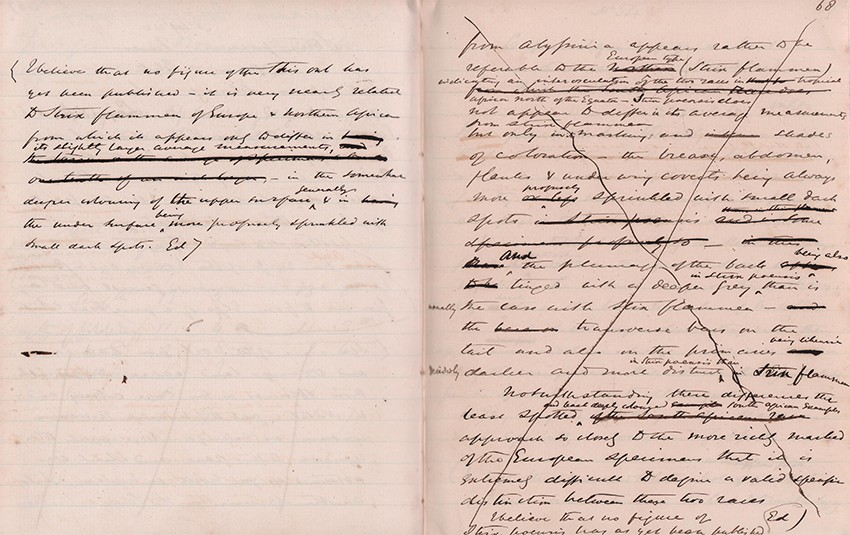 (I believe that no figure of the this owl has
yet been published – it is very nearly related
to Strix flammea of Europe & Northern Africa
from which it appears only to differ in
its slightly larger average measurements, and
– in the somewhat
deeper colouring of the upper surface, & in generally
the under surface being more profusely sprinkled with
small dark spots. Ed)
68
from Abyssinia appears rather to be
referable to the European type (Strix flammea)
indicating an intercolation of the two races in tropical
Africa North of the Equator – Strix poensis does
not appear to differ in its average measurements
from Strix flammea
but only in marking, and shades
of coloration – the breast, abdomen,
flanks & under wing coverts being always
more profusely sprinkled with small dark
spots
specimens profusely so – in the
and the plumage of the back being also
tinged with a deeper grey in Strix poensis than is
usually the case with Strix flammea – and
the transverse bars on the
tail and also on the primaries being likewise
darker and more distinct in Strix poensis than in Strix flammea
Notwithstanding these differences the
least spotted and least deeply changed South African examples
approach so closely to the more richly marked
of the European specimens that it is
extremely difficult to define a valid specific
distinction between these two races
I believe that no figure of (Ed)
Strix poensis has as yet been published)